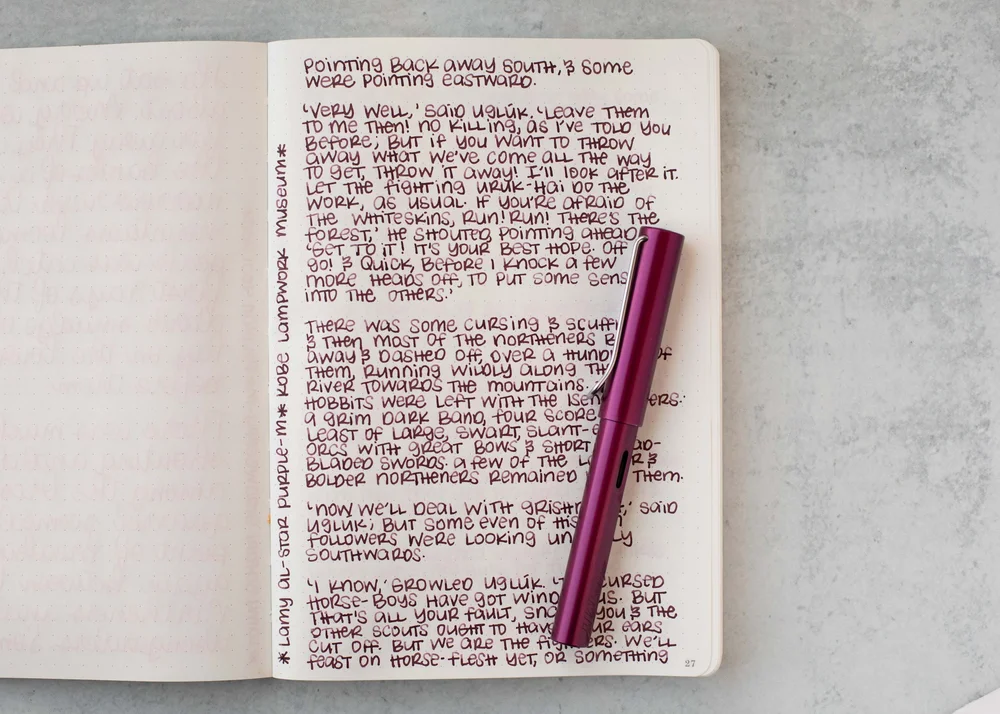 Pointing back away south, & some
were pointing eastward.
'Very well,' said Uglúk. 'Leave them
to me then! No killing, as I've told you
before; but if you want to throw
away what we've come all the way
to get, throw it away! I'll look after it.
Let the fighting Uruk-Hai do the
work, as usual. If you're afraid of
the Whiteskins, run! Run! There's the
forest,' he shouted, pointing ahead.
'Get to it! It's your best hope. Off
go! & quick, before I knock a few
more heads off, to put some sens
into the others.'
There was some cursing & scuff
& then most of the northeners b
away & dashed off, over a hund of
them, running wildly along th
river towards the mountains.
Hobbits were left with the Isen ers:
a grim dark band, four score
least of large, swart, slant-e
orcs with great bows & short ad-
bladed swords. A few of the l r &
bolder northeners remained them.
'Now we'll deal with Grishn ,' said
Uglúk; but some even of his n
followers were looking un ly
southwards.
'I know,' growled Uglúk. 'T cursed
horse-boys have got wind us. But
that's all your fault, Sna you & the
other scouts ought to have ur ears
cut off. But we are the figh ers. We'll
feast on horse-flesh yet, or something
27
*Lamy Al-Star Purple-M* Kobe Lampwork Museum*